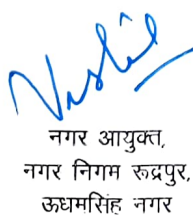 नगर आयुक्त,
नगर निगम रूद्रपुर,
ऊधमसिंह नगर